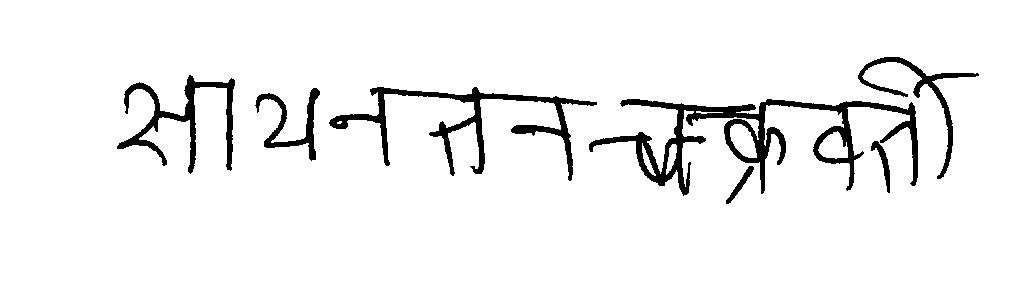 सायनत्तन चक्रवर्ती